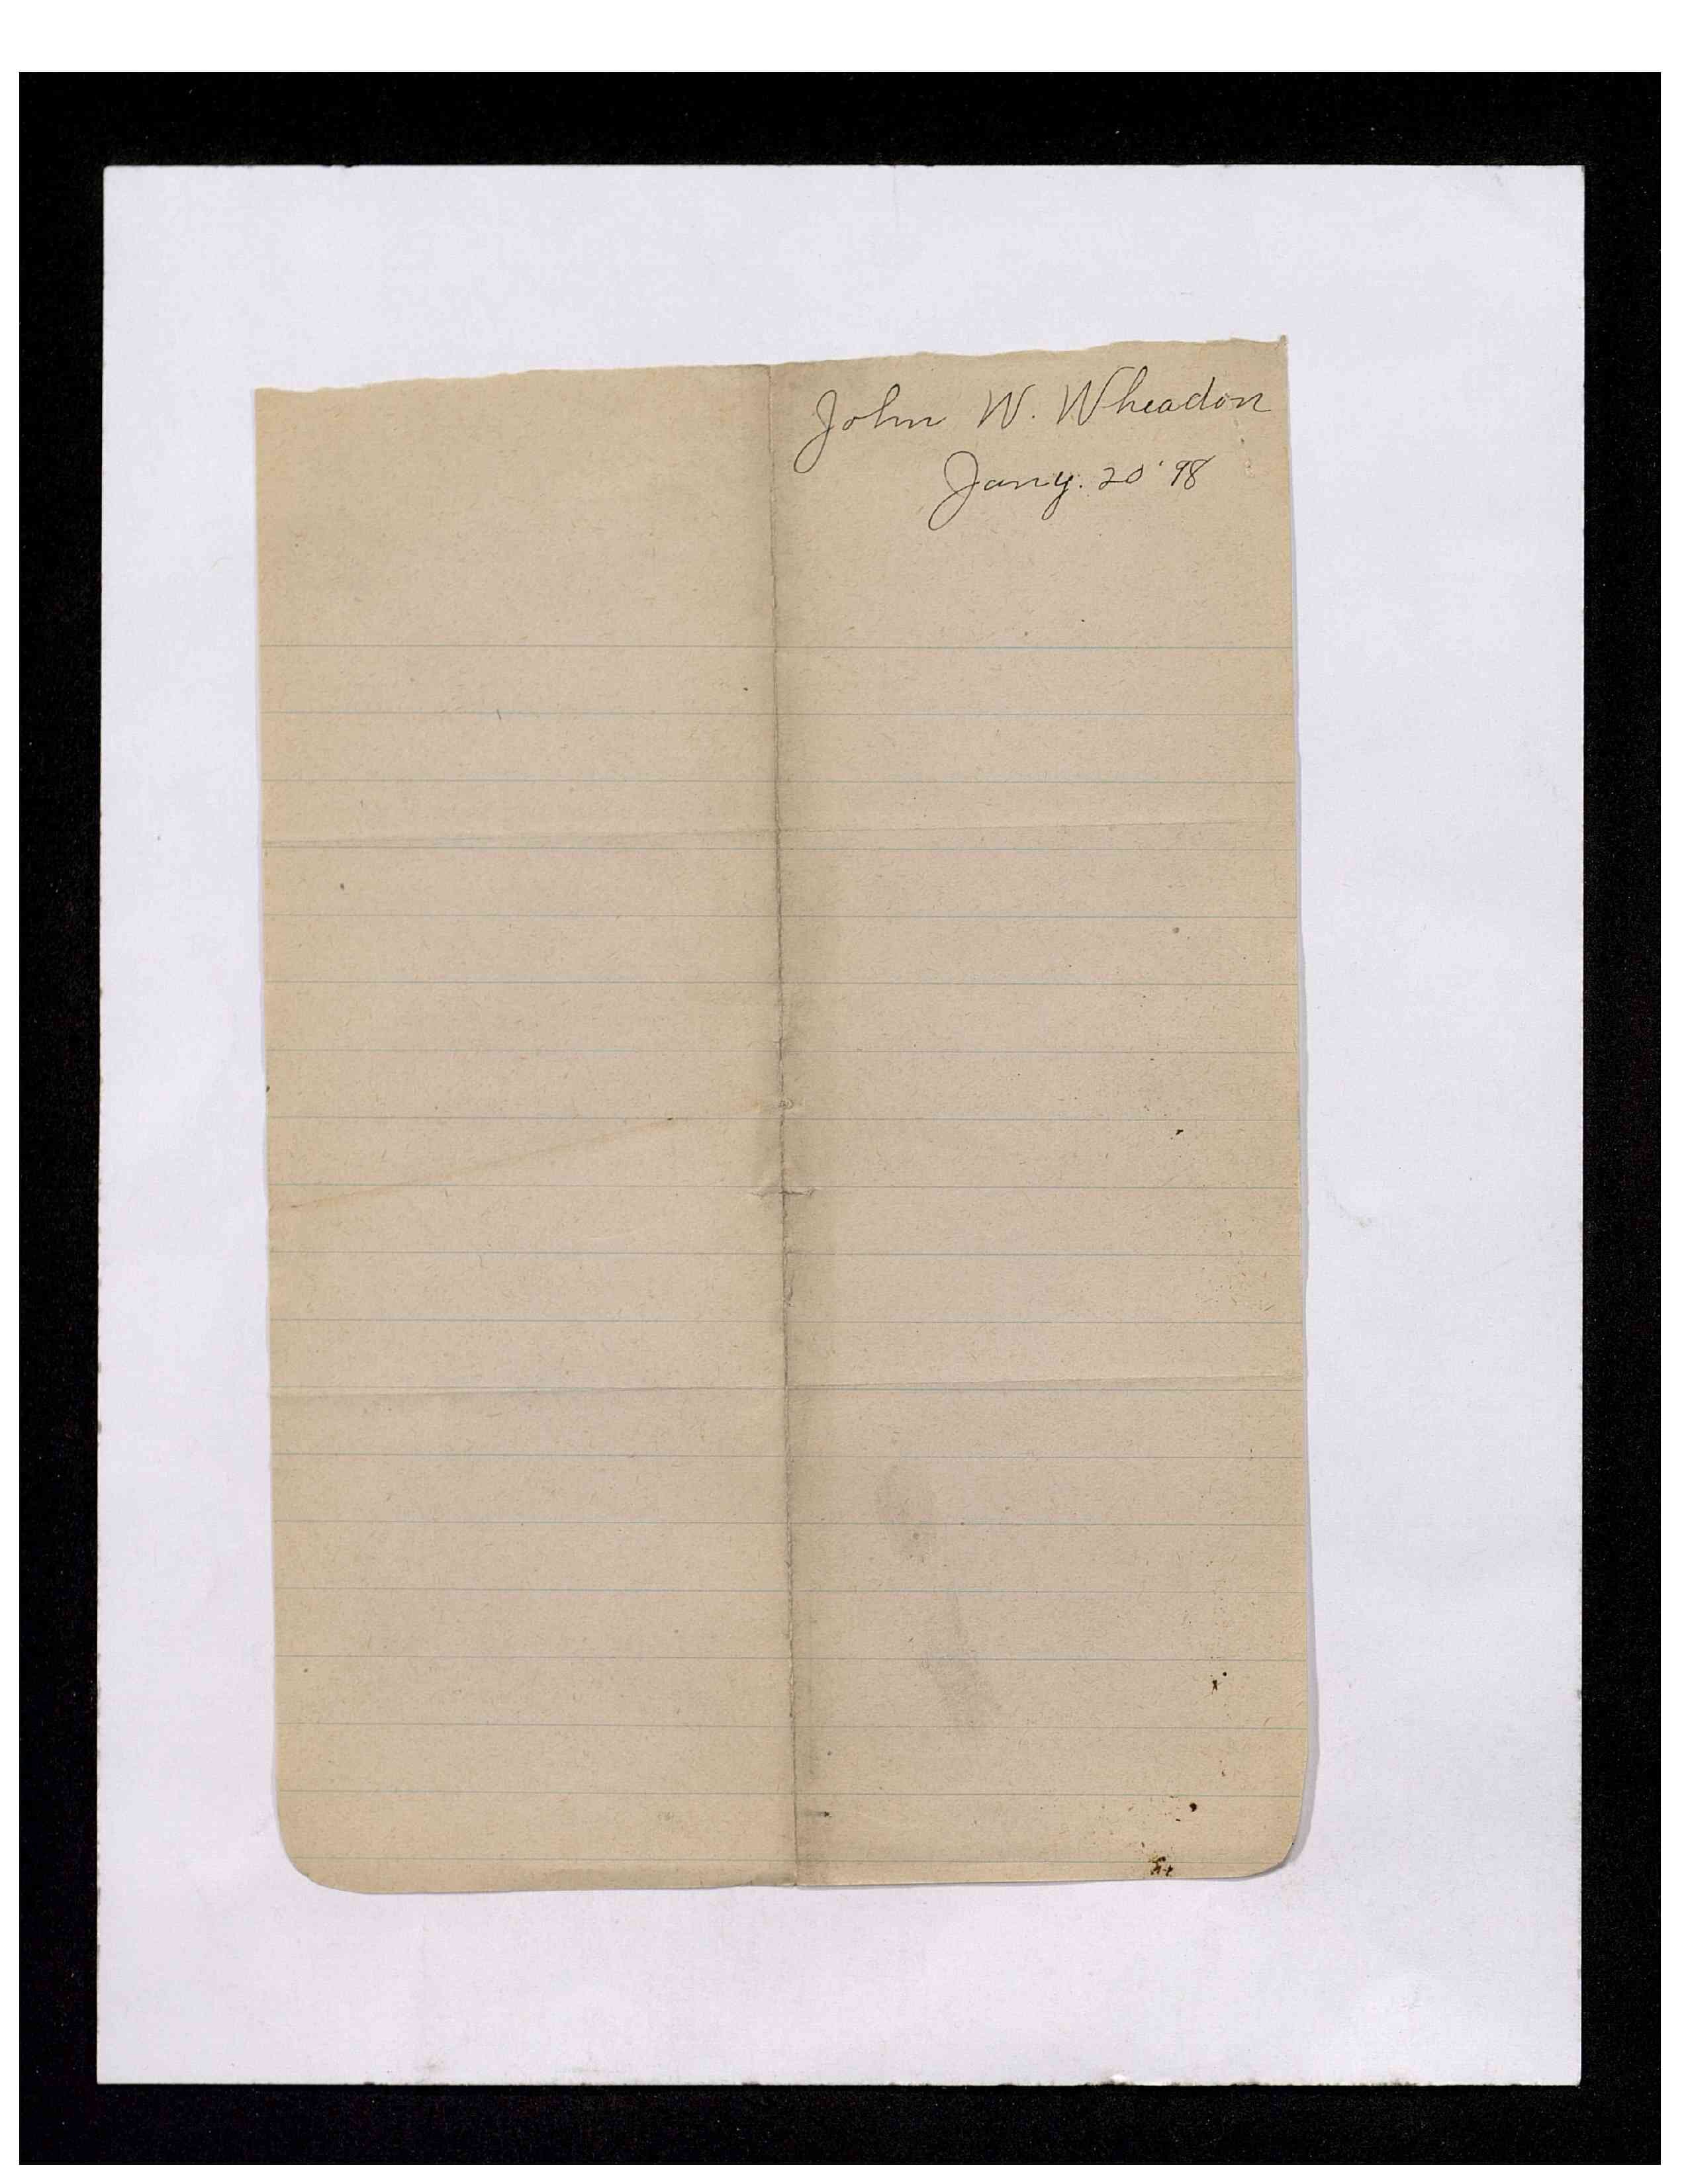 John W. Wheadon
Jany. 20 '98